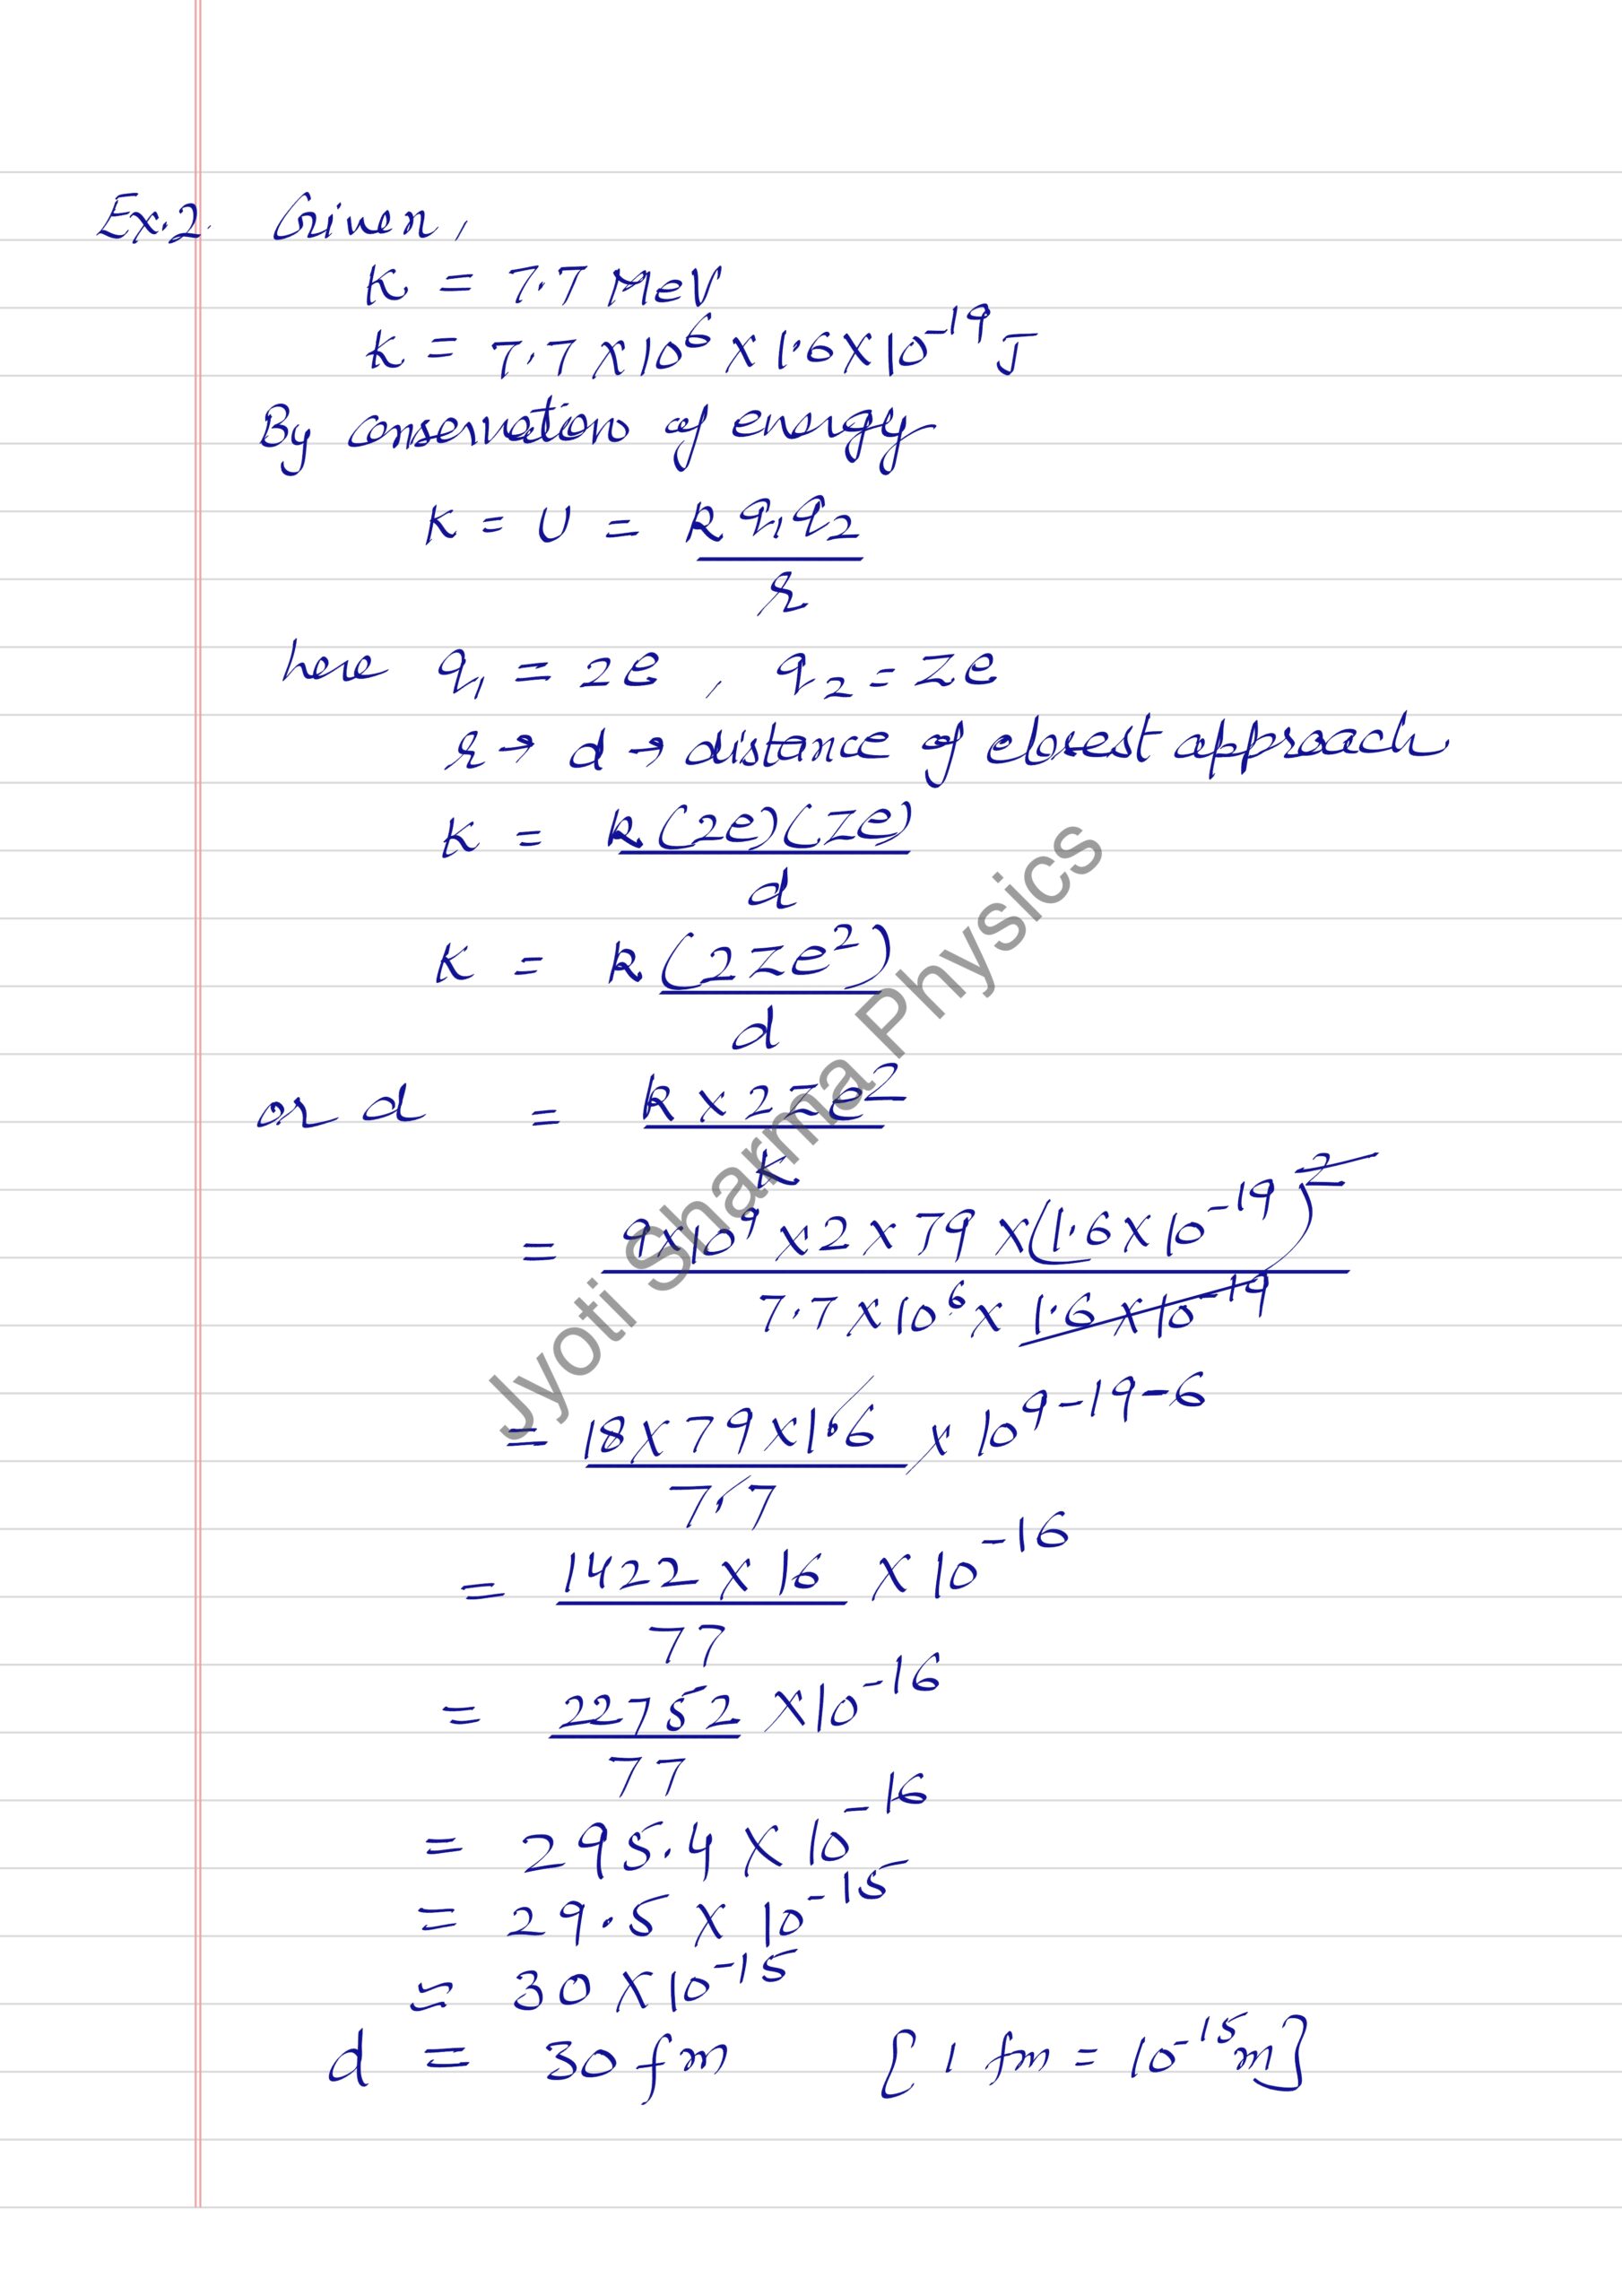 Ex.2. Given,
K = 7.7 MeV
K = 7.7 X 10^6 X 1.6 X 10^-19 J
By conservation of energy
K = U = k q1 q2
r
here q1 = 2e , q2 = Ze
r → d → distance of closest approach
K = k (2e)(Ze)
d
K = k (2Ze^2)
d
or d = k x 2Ze^2
K
= 9x10^9 x 2 x 79 x (1.6 x 10^-19)^2
7.7 x 10^6 x 1.6 x 10^-19
= 18 x 79 x 1.6 x 10^9-19-6
7.7
= 1422 x 16 X 10^-16
77
= 22752 X 10^-16
77
= 295.4 X 10^-16
= 29.5 X 10^-15
≈ 30 X 10^-15
d = 30 fm [1 fm = 10^-15 m]
Jyoti Sharma Physics